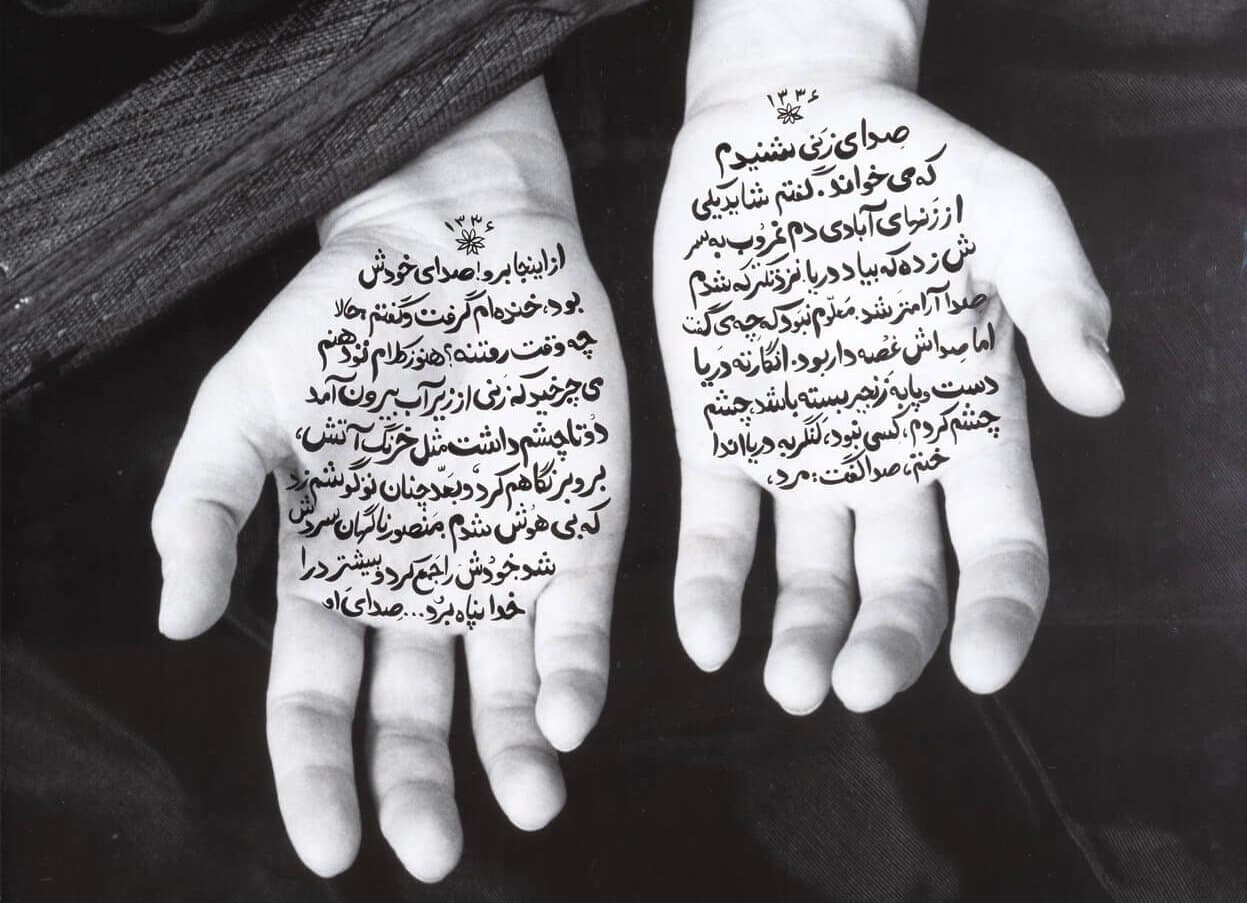 ۱۳۳۶
صدای زَنی شنیدم
که می خواند. گفتم شاید یکی
از زَنهای آبادی دم غروب به سر
ش زده که بیاد دریا. نزدیکتر که شدم
صدا آرامتر شد. معلوم نبود که چه می گفت
اما صِداش غُصه دار بود. انگار ته دَریا
دست و پا به زَنجیر بسته باشد، چشم
چشم کردم، کسی نبود، لنگر به دریا اندا
ختم، صدا گفت: مرد،
۱۳۳۶
از اینجا برو! صدای خودش
بود، خنده ام گرفت و گفتم حالا
چه وقت رفتنه؟ هنوز کلام تو دهنم
می چرخید که زَنی از زیر آب بیرون آمد
دُو تا چشم داشت مثل خرنگ آتش،
بر و بر نگاهم کرد و بعد چنان تو گوشم زد
که بی هوُش شدم. مَنصور ناگهان سردش
شد. خُودش را جَمع کرد و بیشتر در را
خدا پناه برُد... صِدایَ او